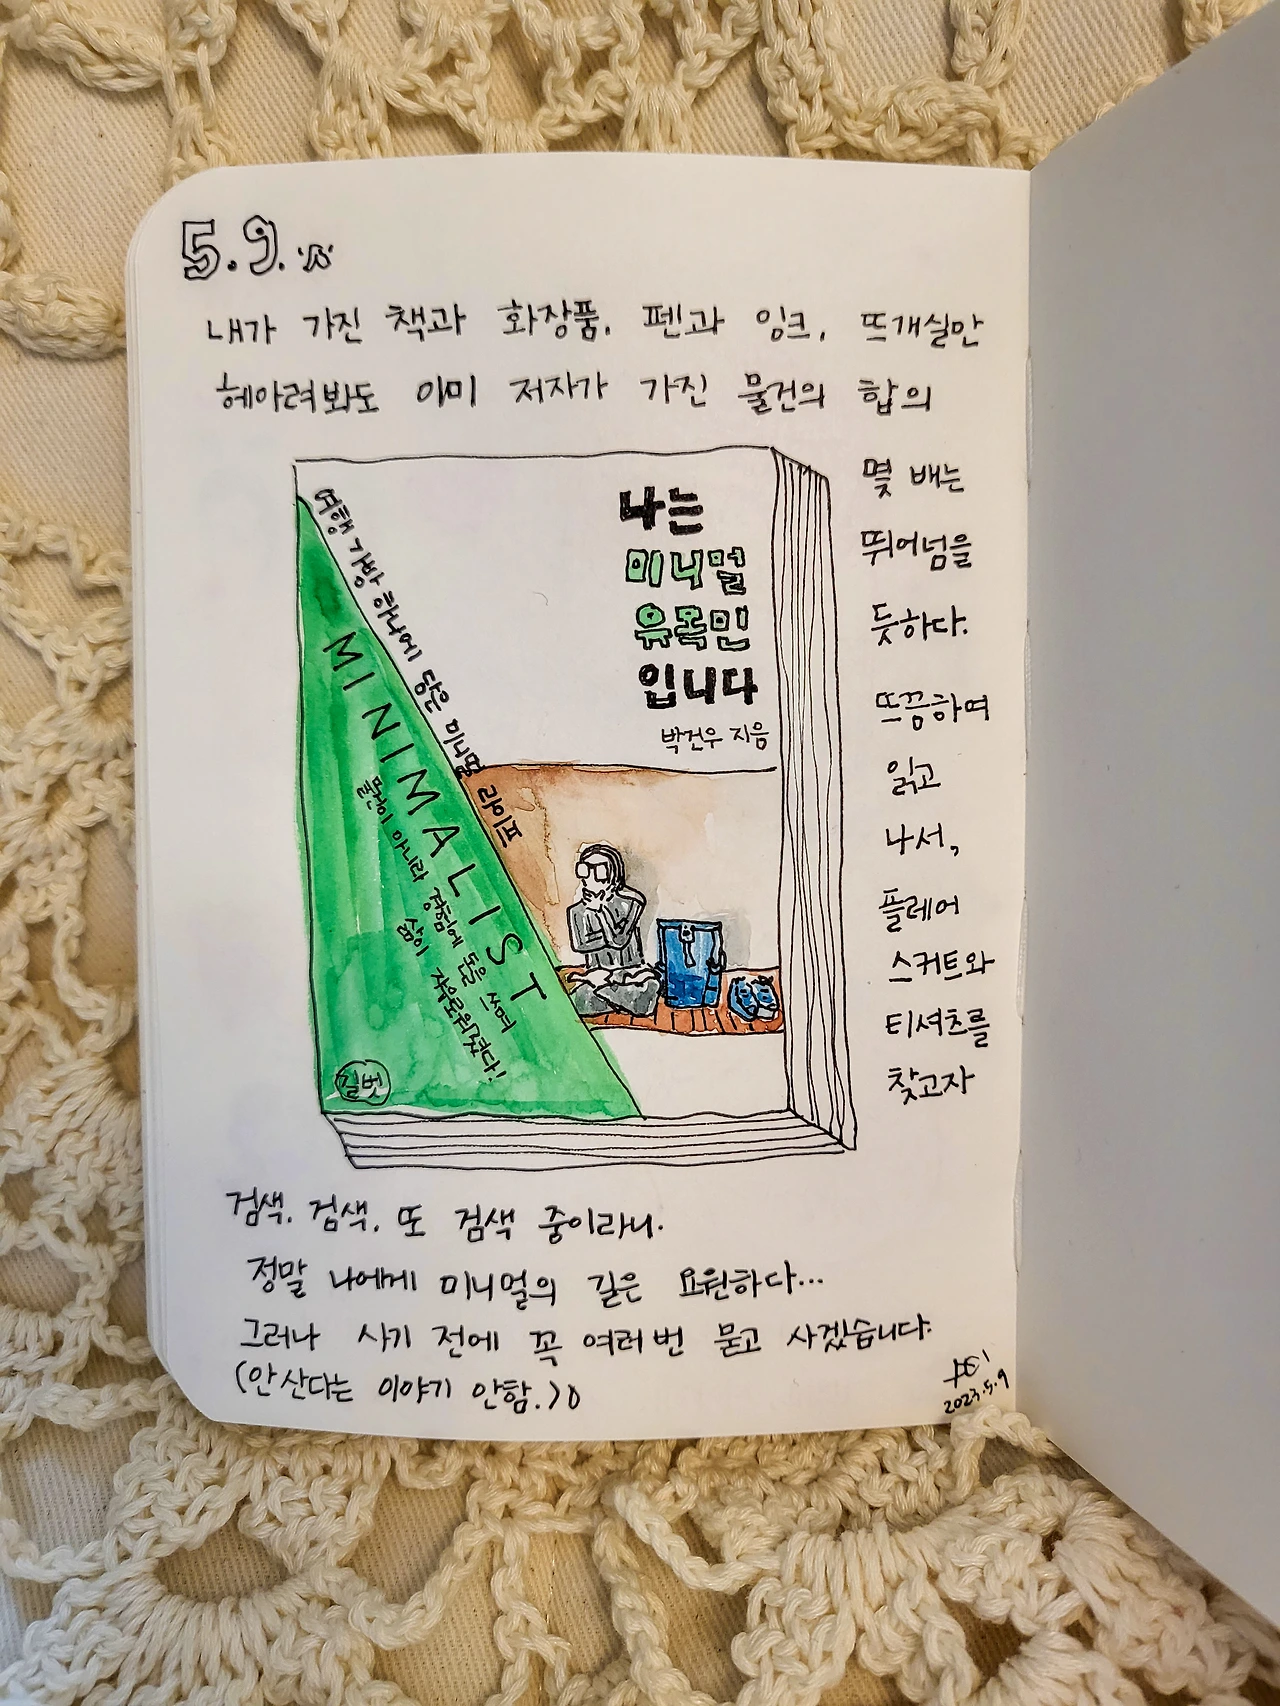 5.9.
내가 가진 책과 화장품, 펜과 잉크, 뜨개실만
헤아려봐도 이미 저자가 가진 물건의 합의
몇 배는
뛰어넘을
듯하다.
뜨끔하여
읽고
나서,
플레어
스커트와
티셔츠를
찾고자
나는
미니멀
유목민
입니다
박건우 지음
여행 가방 하나에 담은 미니멀 라이프
MINIMALIST
물건이 아니라 경험에 돈을 쓰며
삶이 자유로워졌다!
길벗
검색, 검색, 또 검색 중이라니.
정말 나에게 미니멀의 길은 요원하다...
그러나 사기 전에 꼭 여러 번 묻고 사겠습니다.
(안 산다는 이야기 안함.)
2023.5.9